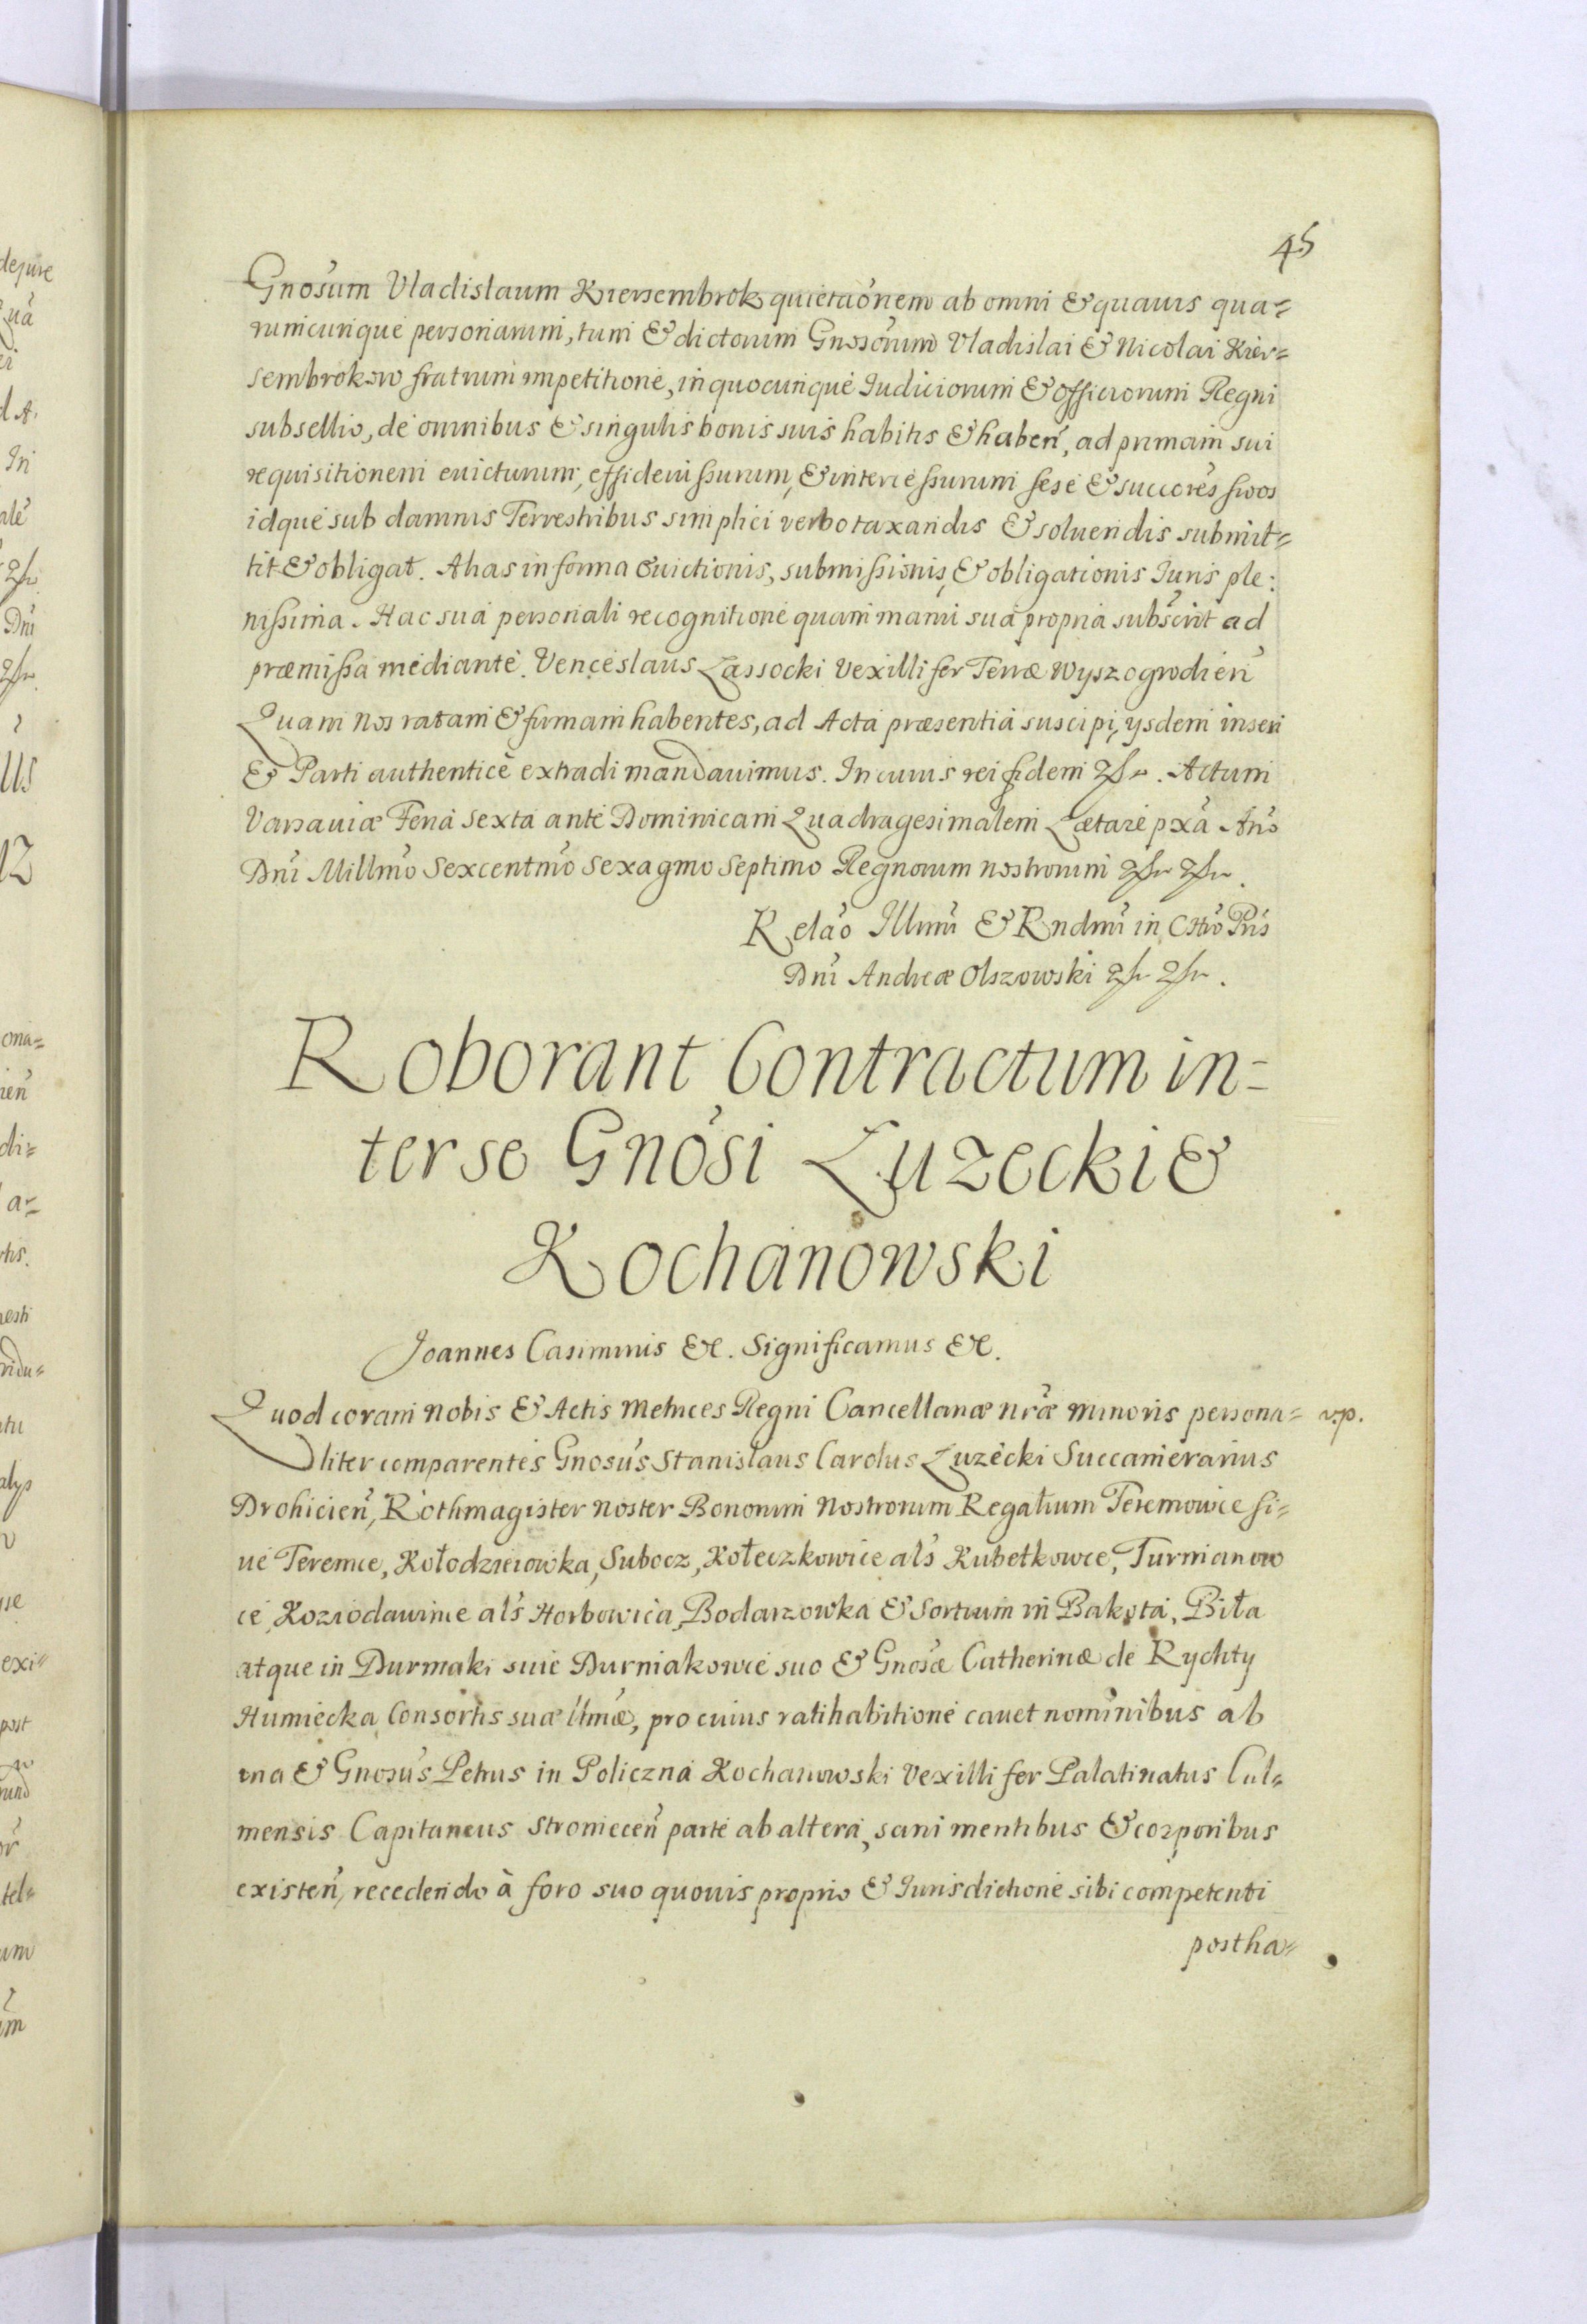 45
Gnosum Vladislaum Kiersembrok quietaõnem ab omni & quauis qua=
rumcunque personarum, tum & dictorum Gnosorum Vladislai & Nicolai Kier=
sembrokow fratrum impetitione, in quocunque Iudiciorum & officiorum Regni
subsellio, de omnibus & singulis bonis suis habitis & habeñ, ad primam sui
requisitionem euicturum, effidemissurum, & intercessurum sese & succores suos
idque sub damnis Terrestribus simplici verbo taxandis & soluendis submit=
tit & obligat. Alias in forma euictionis, submissionis, & obligationis Iuris ple:
nissima. Hac sua personali recognitione quam manu sua propria subscrit ad
præmissa mediante. Venceslaus Lassocki Vexillifer Terræ Wyszogrodień
Quam nos ratam & firmam habentes, ad Acta præsentia suscipi, ysdem inseri
& Parti authenticè extradi mandauimus. In cuius rei fidem &. Actum
Varsauiæ Feria Sexta ante Dominicam Quadragesimalem Lætare pxa Año
Dñi Millmo Sexcentmo Sexagmo Septimo Regnorum nostrorum & &.
Relaõ Illmi & Rndmi in Chro Pris
Dñi Andreæ Olszowski & &.
Roborant Contractum in=
ter se Gnosi Luzecki &
Kochanowski
Joannes Casimirus &c. Significamus &c.
Quod coram nobis & Actis Metrices Regni Cancellariæ nræ minoris persona= v.p.
liter comparentes Gnosus Stanislaus Carolus Luzecki Succamerarius
Drohicień, Rothmagister noster Bonorum Nostrorum Regalium Teremowce si=
ue Teremce, Kołodzieiowka, Subocz, Kołeczkowice als Kubełkowce, Turmanow
ce, Koziodawnie als Horbowica, Bodarzowka & Sortium in Bakota, Biła
atque in Durmaki siue Durniakowce suo & Gnosæ Catherinæ de Rychty
Humiecka Consortis suæ llmæ, pro cuius ratihabitione cauet nominibus ab
una & Gnosus Petrus in Policzna Kochanowski Vexillifer Palatinatus Cul=
mensis Capitaneus Stromeceń parte ab altera, sani mentibus & corporibus
existeń, recedendo à foro suo quouis proprio & Iurisdictione sibi competenti
postha=